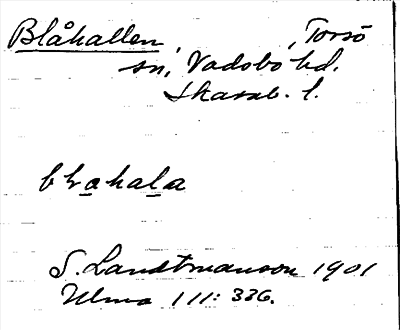 Blåhallen, , Torsö
sn, Vadsbo hd.
Skarab. l.
blahala
S. Landtmanson 1901
Ulma 111: 336.